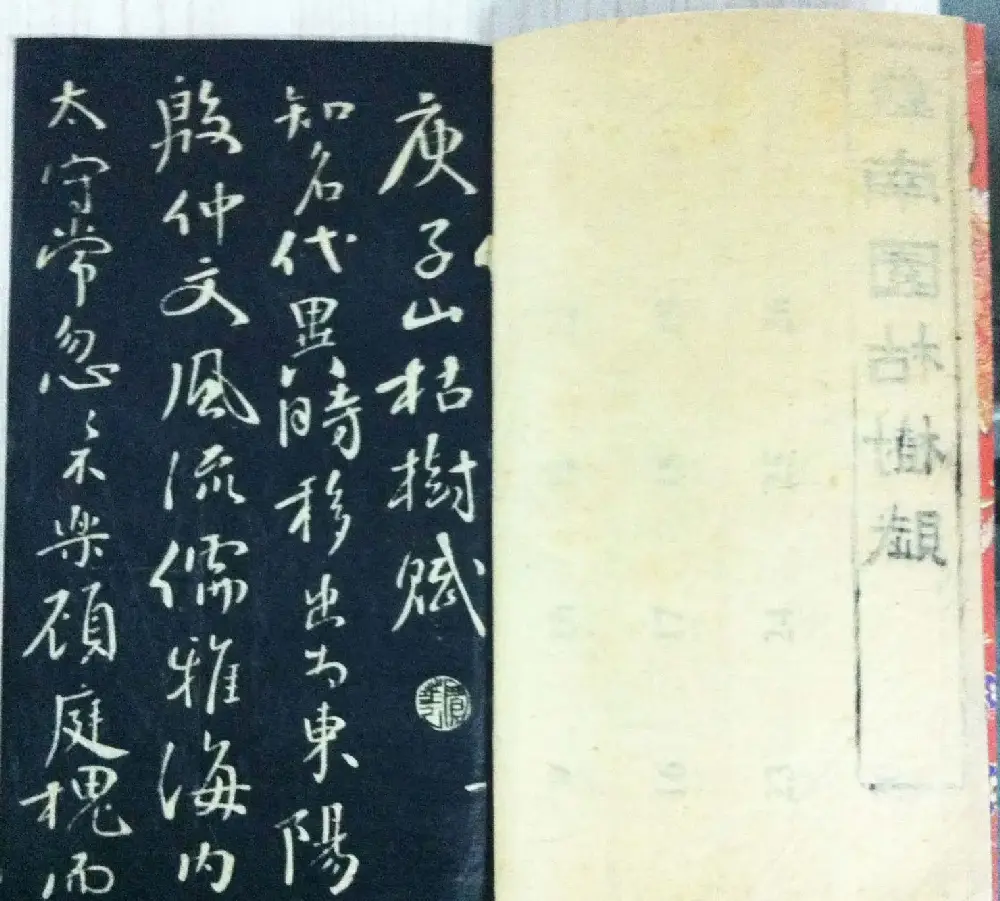 庾子山枯樹賦
知名代異時移出為東陽
殷仲文風流儒雅海内
太守常忽〻不樂顧庭槐而
24 17
23 16